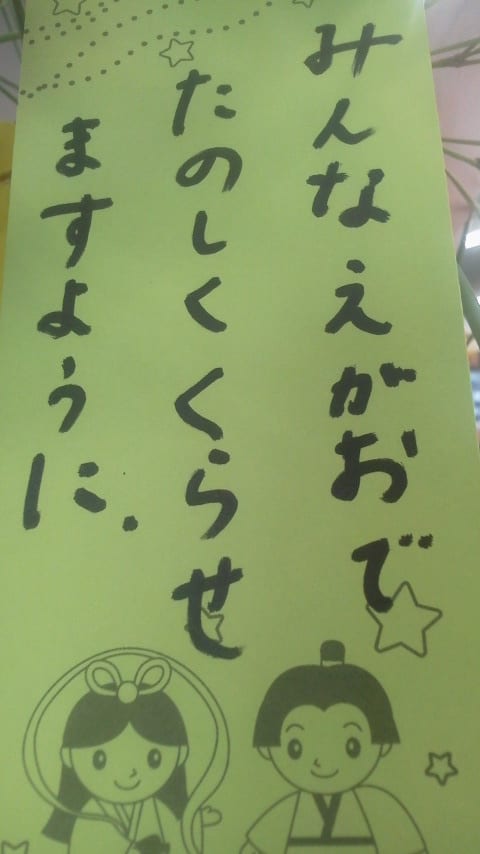 みんなえがおで
たのしくくらせ
ますように.